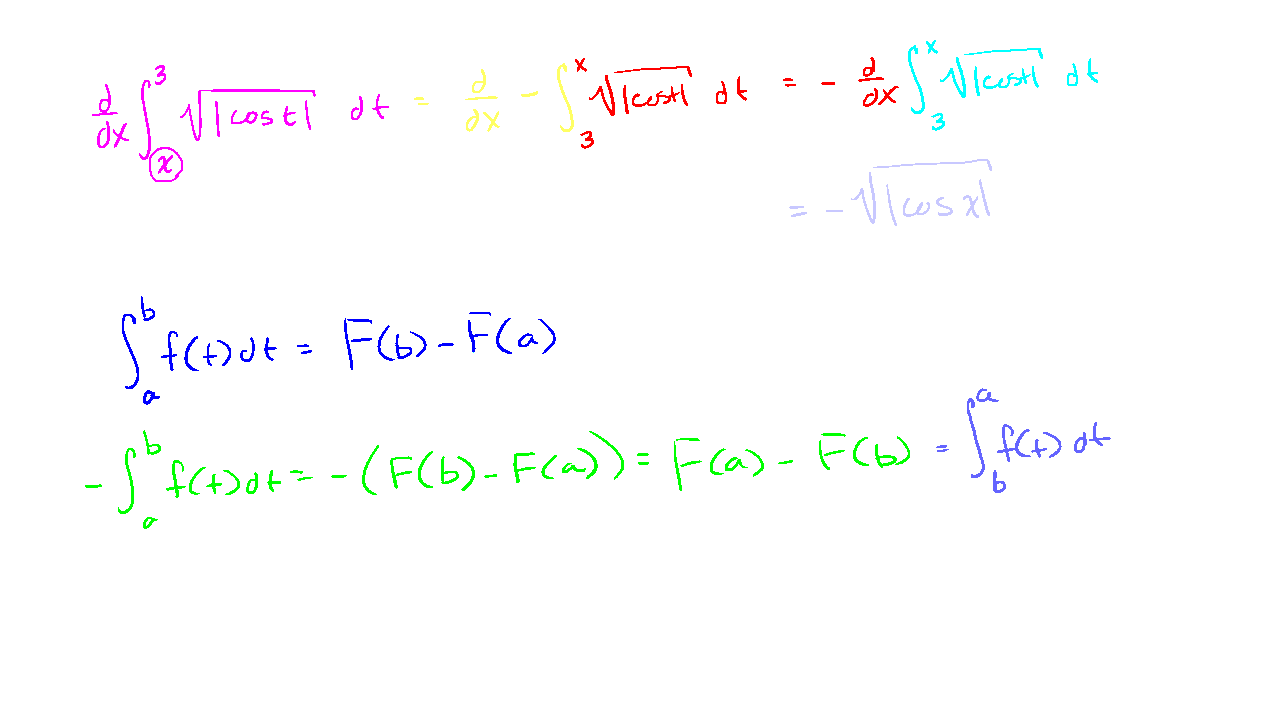 d/dx ∫_x^3 √|cos t| dt = d/dx - ∫_3^x √|cost| dt = - d/dx ∫_3^x √|cost| dt
= - √|cos x|
∫_a^b f(t)dt = F(b) - F(a)
- ∫_a^b f(t)dt = - (F(b) - F(a)) = F(a) - F(b) = ∫_b^a f(t) dt